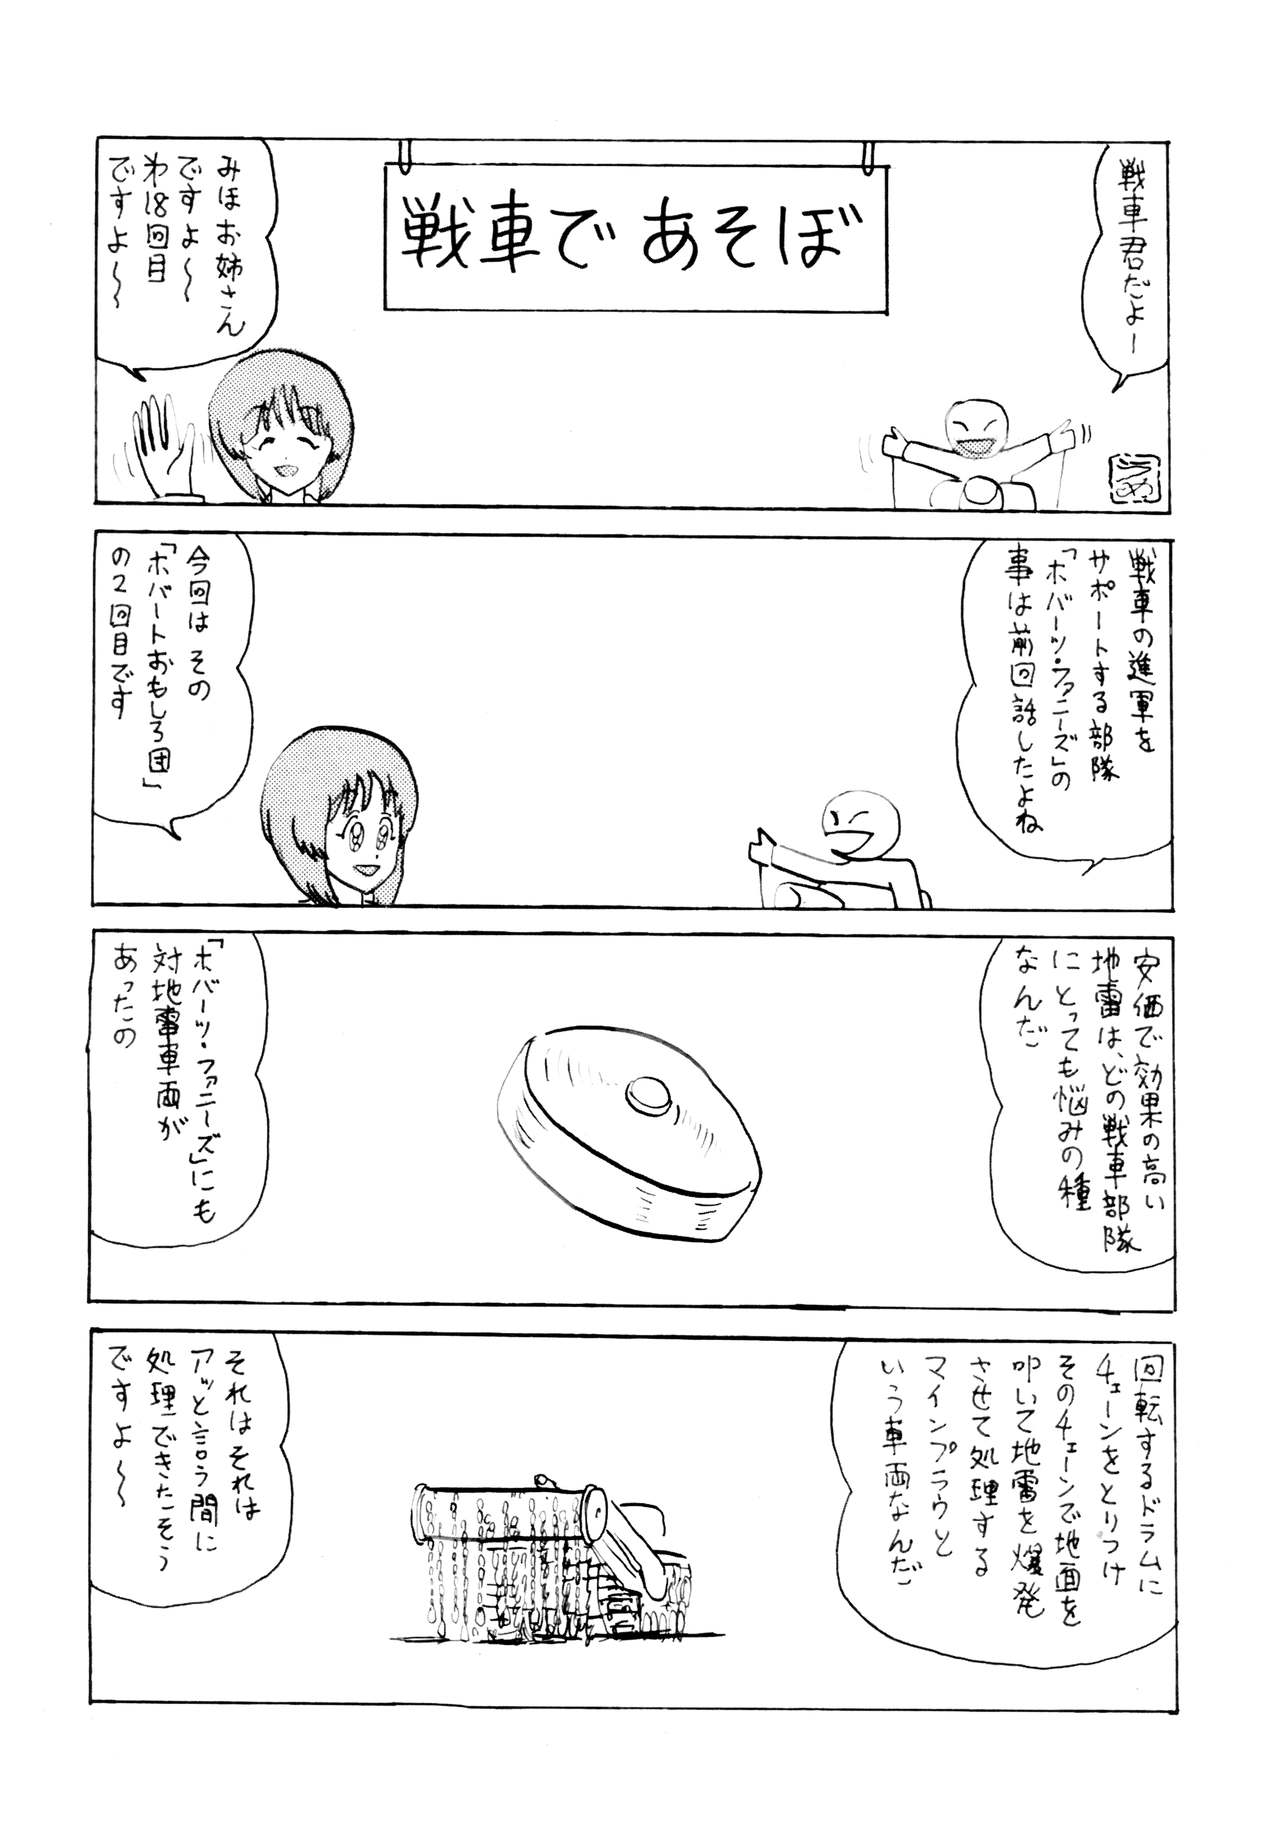 戦車であそぼ
戦車君だよー
みほお姉さん
ですよ〜
わ18回目
ですよ〜〜
戦車の進軍を
サポートする部隊
「ホバーツ・ファニーズ」の
事は前回話したよね
今回は その
「ホバートおもしろ団」
の2回目です
安価で効果の高い
地雷は、どの戦車部隊
にとっても悩みの種
なんだ
「ホバーツ・ファニーズ」にも
対地雷車両が
あったの
回転するドラムに
チェーンをとりつけ
そのチェーンで地面を
叩いて地雷を爆発
させて処理する
マインプラウと
いう車両なんだ
それはそれは
アッと言う間に
処理できたそう
ですよ〜〜